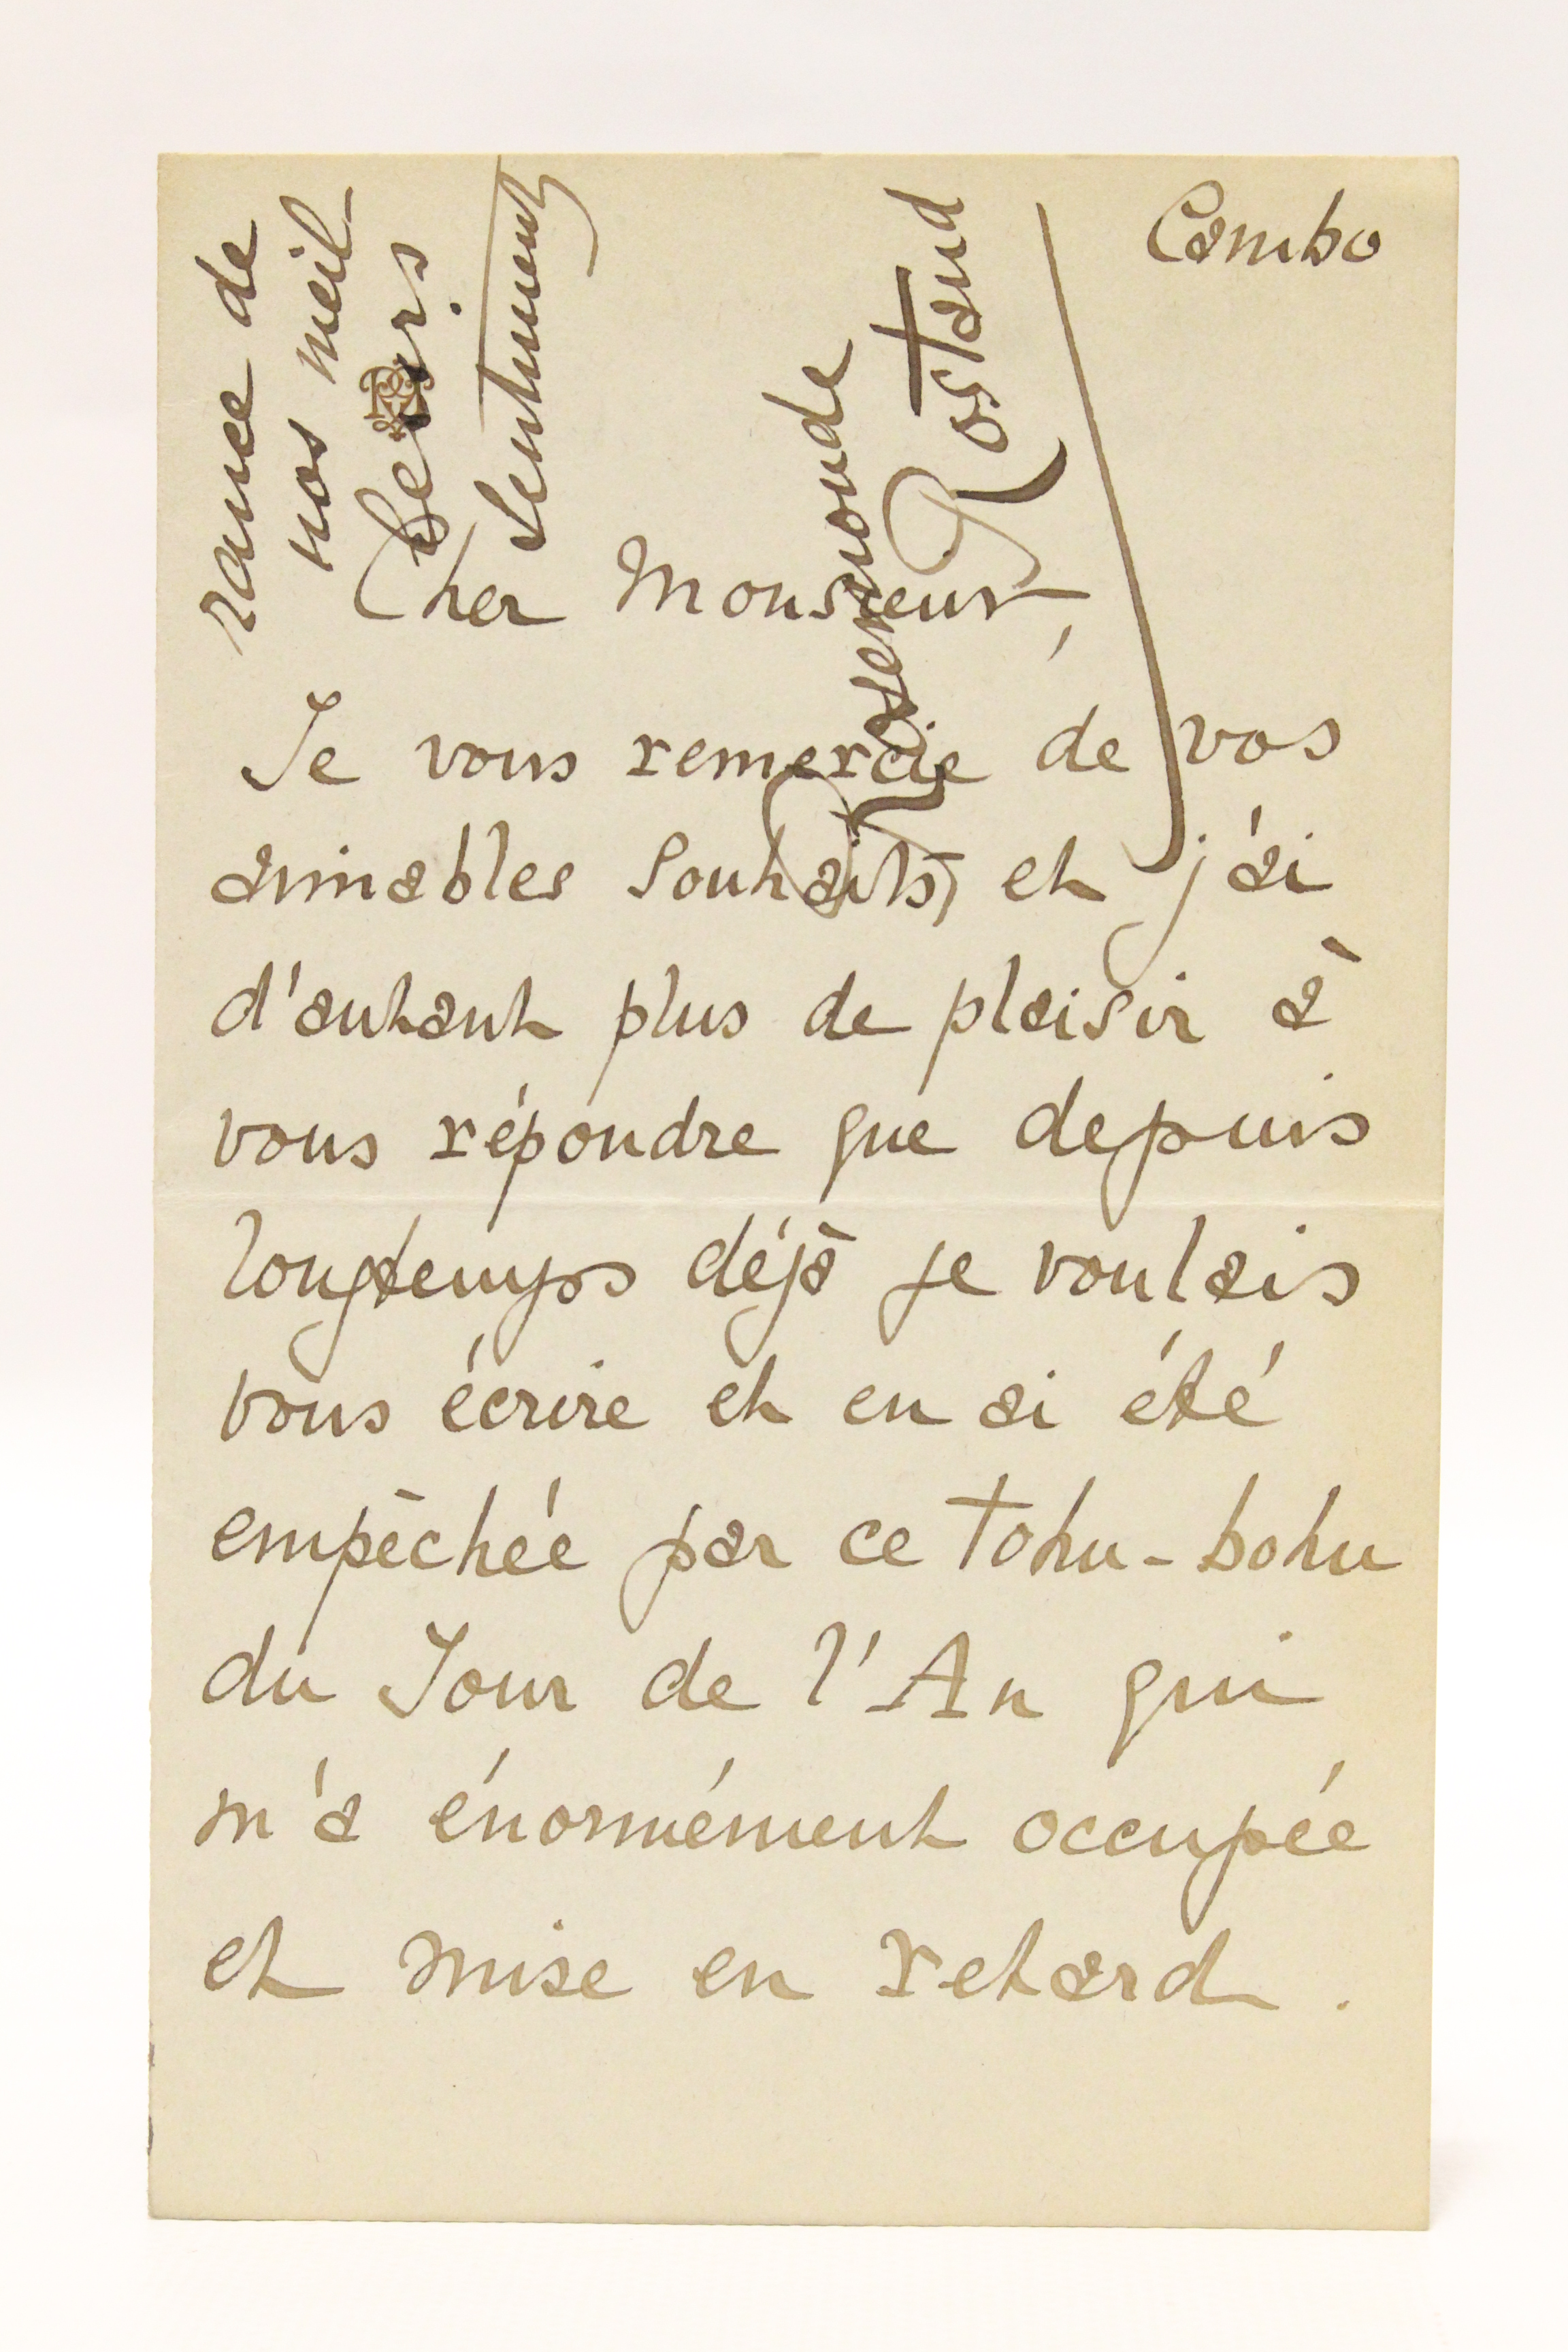 Cambo
Cher Monsieur,
Je vous remercie de vos
aimables souhaits, et j'ai
d'autant plus de plaisir à
vous répondre que depuis
longtemps déjà je voulais
vous écrire et en ai été
empêchée par ce tohu-bohu
du Jour de l'An qui
m'a énormément occupée
et mise en retard.
rance de
nos meil-
leurs
sentiments
Rosemonde
Rostand